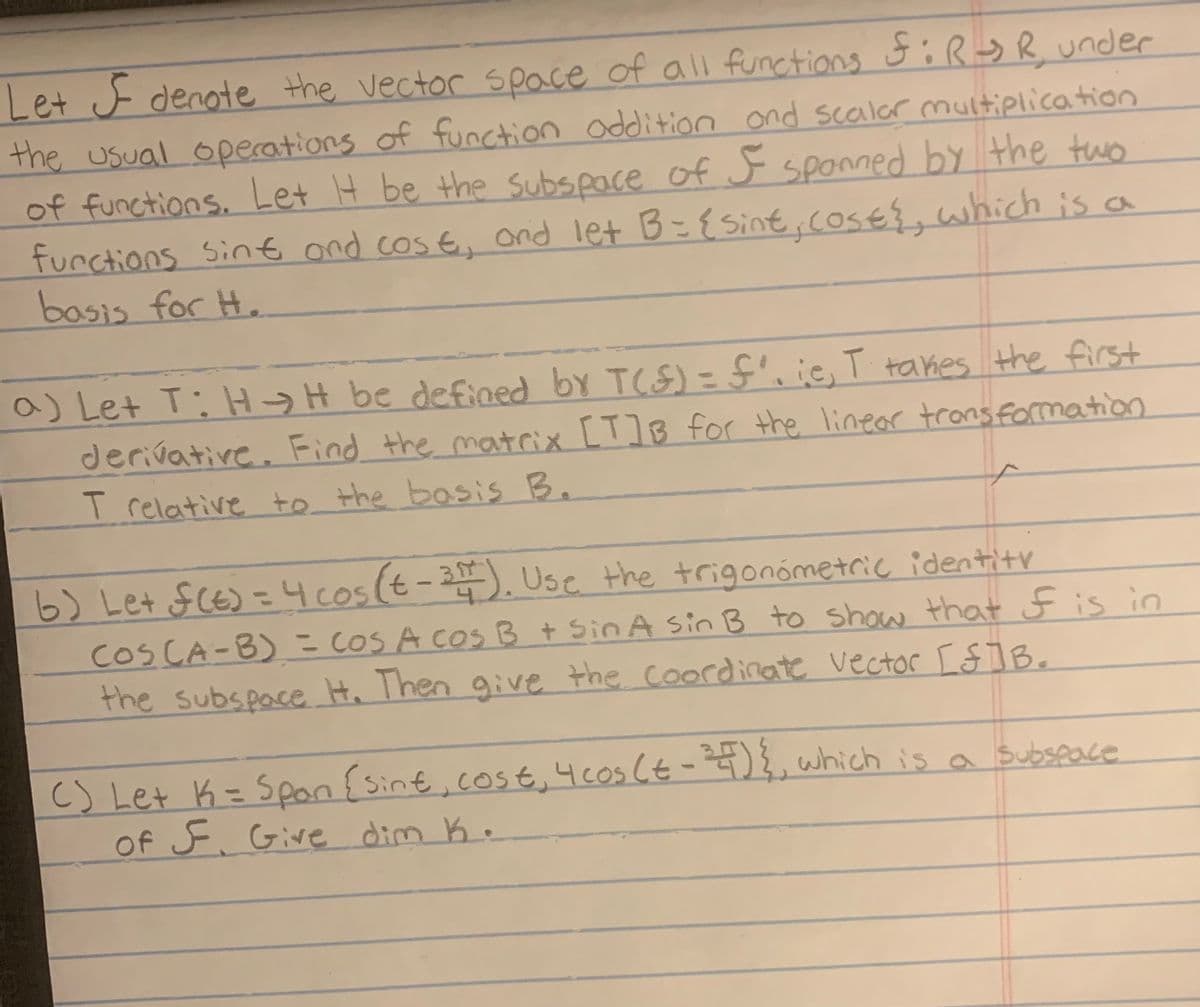 Let F denote the vector space of all functions f: R→R, under
the usual operations of function addition and scalar multiplication
of functions. Let H be the subspace of F spanned by the two
functions sint and cost, and let B={sint,cost}, which is a
basis for H.
a) Let T: H→H be defined by T(f)=f'. ie, T takes the first
derivative. Find the matrix [T]B for the linear transformation
T relative to the basis B.
b) Let f(t)=4cos(t-3π/4). Use the trigonometric identity
cos(A-B) = cos A cos B + sin A sin B to show that f is in
the subspace H. Then give the coordinate vector [f]B.
c) Let K = Span {sint, cost, 4cos(t-3π/4)}, which is a subspace
of F. Give dim K.